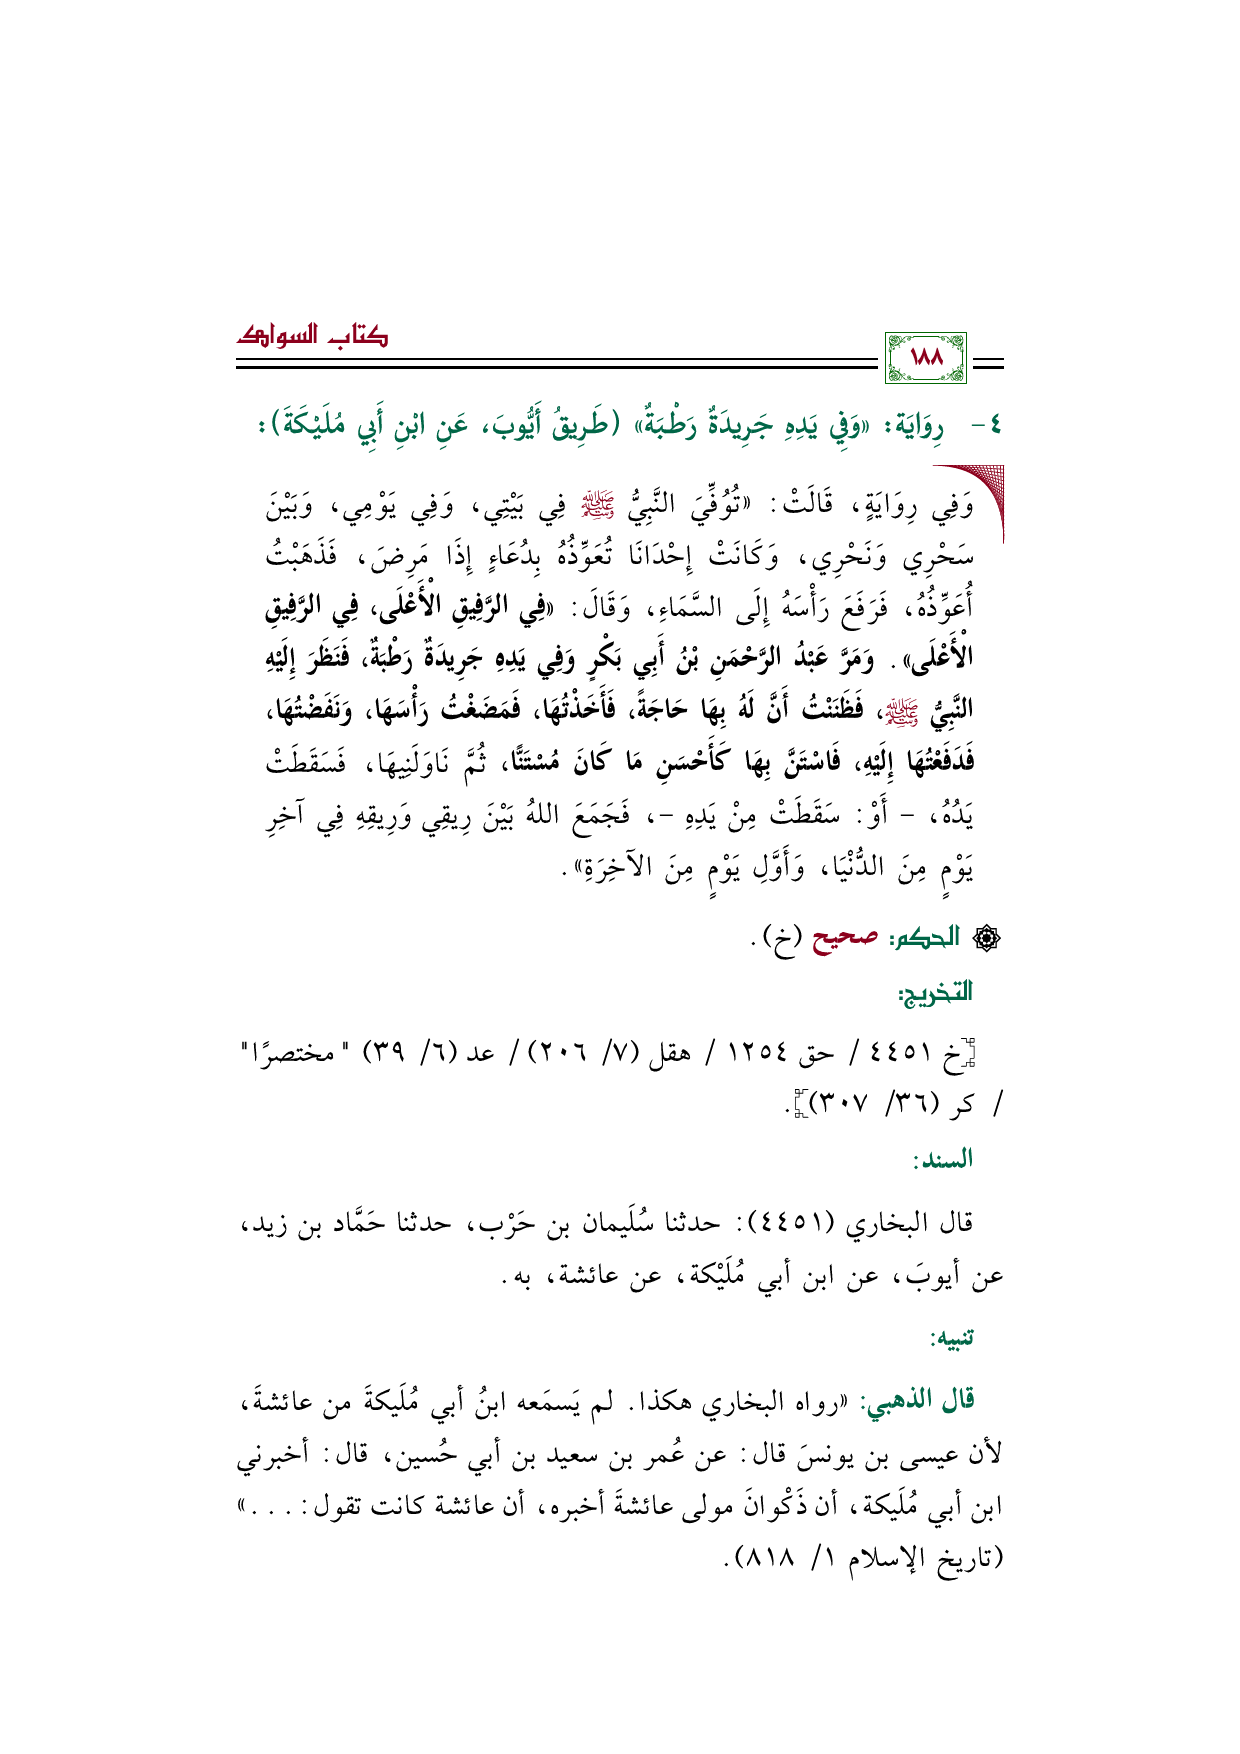 كتاب السواك
١٨٨
٤- رِوَايَة: «وَفِي يَدِهِ جَرِيدَةٌ رَطْبَةٌ» (طَرِيقُ أَيُّوبَ، عَنِ ابْنِ أَبِي مُلَيْكَةَ):
وَفِي رِوَايَةٍ، قَالَتْ: «تُوُفِّيَ النَّبِيُّ ﷺ فِي بَيْتِي، وَفِي يَوْمِي، وَبَيْنَ
سَحْرِي وَنَحْرِي، وَكَانَتْ إِحْدَانَا تُعَوِّذُهُ بِدُعَاءٍ إِذَا مَرِضَ، فَذَهَبْتُ
أُعَوِّذُهُ، فَرَفَعَ رَأْسَهُ إِلَى السَّمَاءِ، وَقَالَ: «فِي الرَّفِيقِ الْأَعْلَى، فِي الرَّفِيقِ
الْأَعْلَى». وَمَرَّ عَبْدُ الرَّحْمَنِ بْنُ أَبِي بَكْرٍ وَفِي يَدِهِ جَرِيدَةٌ رَطْبَةٌ، فَنَظَرَ إِلَيْهِ
النَّبِيُّ ﷺ، فَظَنَنْتُ أَنَّ لَهُ بِهَا حَاجَةً، فَأَخَذْتُهَا، فَمَضَغْتُ رَأْسَهَا، وَنَفَضْتُهَا،
فَدَفَعْتُهَا إِلَيْهِ، فَاسْتَنَّ بِهَا كَأَحْسَنِ مَا كَانَ مُسْتَنًّا، ثُمَّ نَاوَلَنِيهَا، فَسَقَطَتْ
يَدُهُ، - أَوْ: سَقَطَتْ مِنْ يَدِهِ -، فَجَمَعَ اللهُ بَيْنَ رِيقِي وَرِيقِهِ فِي آخِرِ
يَوْمٍ مِنَ الدُّنْيَا، وَأَوَّلِ يَوْمٍ مِنَ الآخِرَةِ».
الحكم: صحيح (خ).
التخريج:
[خ ٤٤٥١ / حق ١٢٥٤ / هقل (٧/ ٢٠٦) / عد (٦/ ٣٩) "مختصرًا"
/ كر (٣٦/ ٣٠٧)].
السند:
قال البخاري (٤٤٥١): حدثنا سُلَيمان بن حَرْب، حدثنا حَمَّاد بن زيد،
عن أيوبَ، عن ابن أبي مُلَيْكة، عن عائشة، به.
تنبيه:
قال الذهبي: «رواه البخاري هكذا. لم يَسمَعه ابنُ أبي مُلَيكةَ من عائشةَ،
لأن عيسى بن يونسَ قال: عن عُمر بن سعيد بن أبي حُسين، قال: أخبرني
ابن أبي مُلَيكة، أن ذَكْوانَ مولى عائشةَ أخبره، أن عائشة كانت تقول: ...»
(تاريخ الإسلام ١/ ٨١٨).